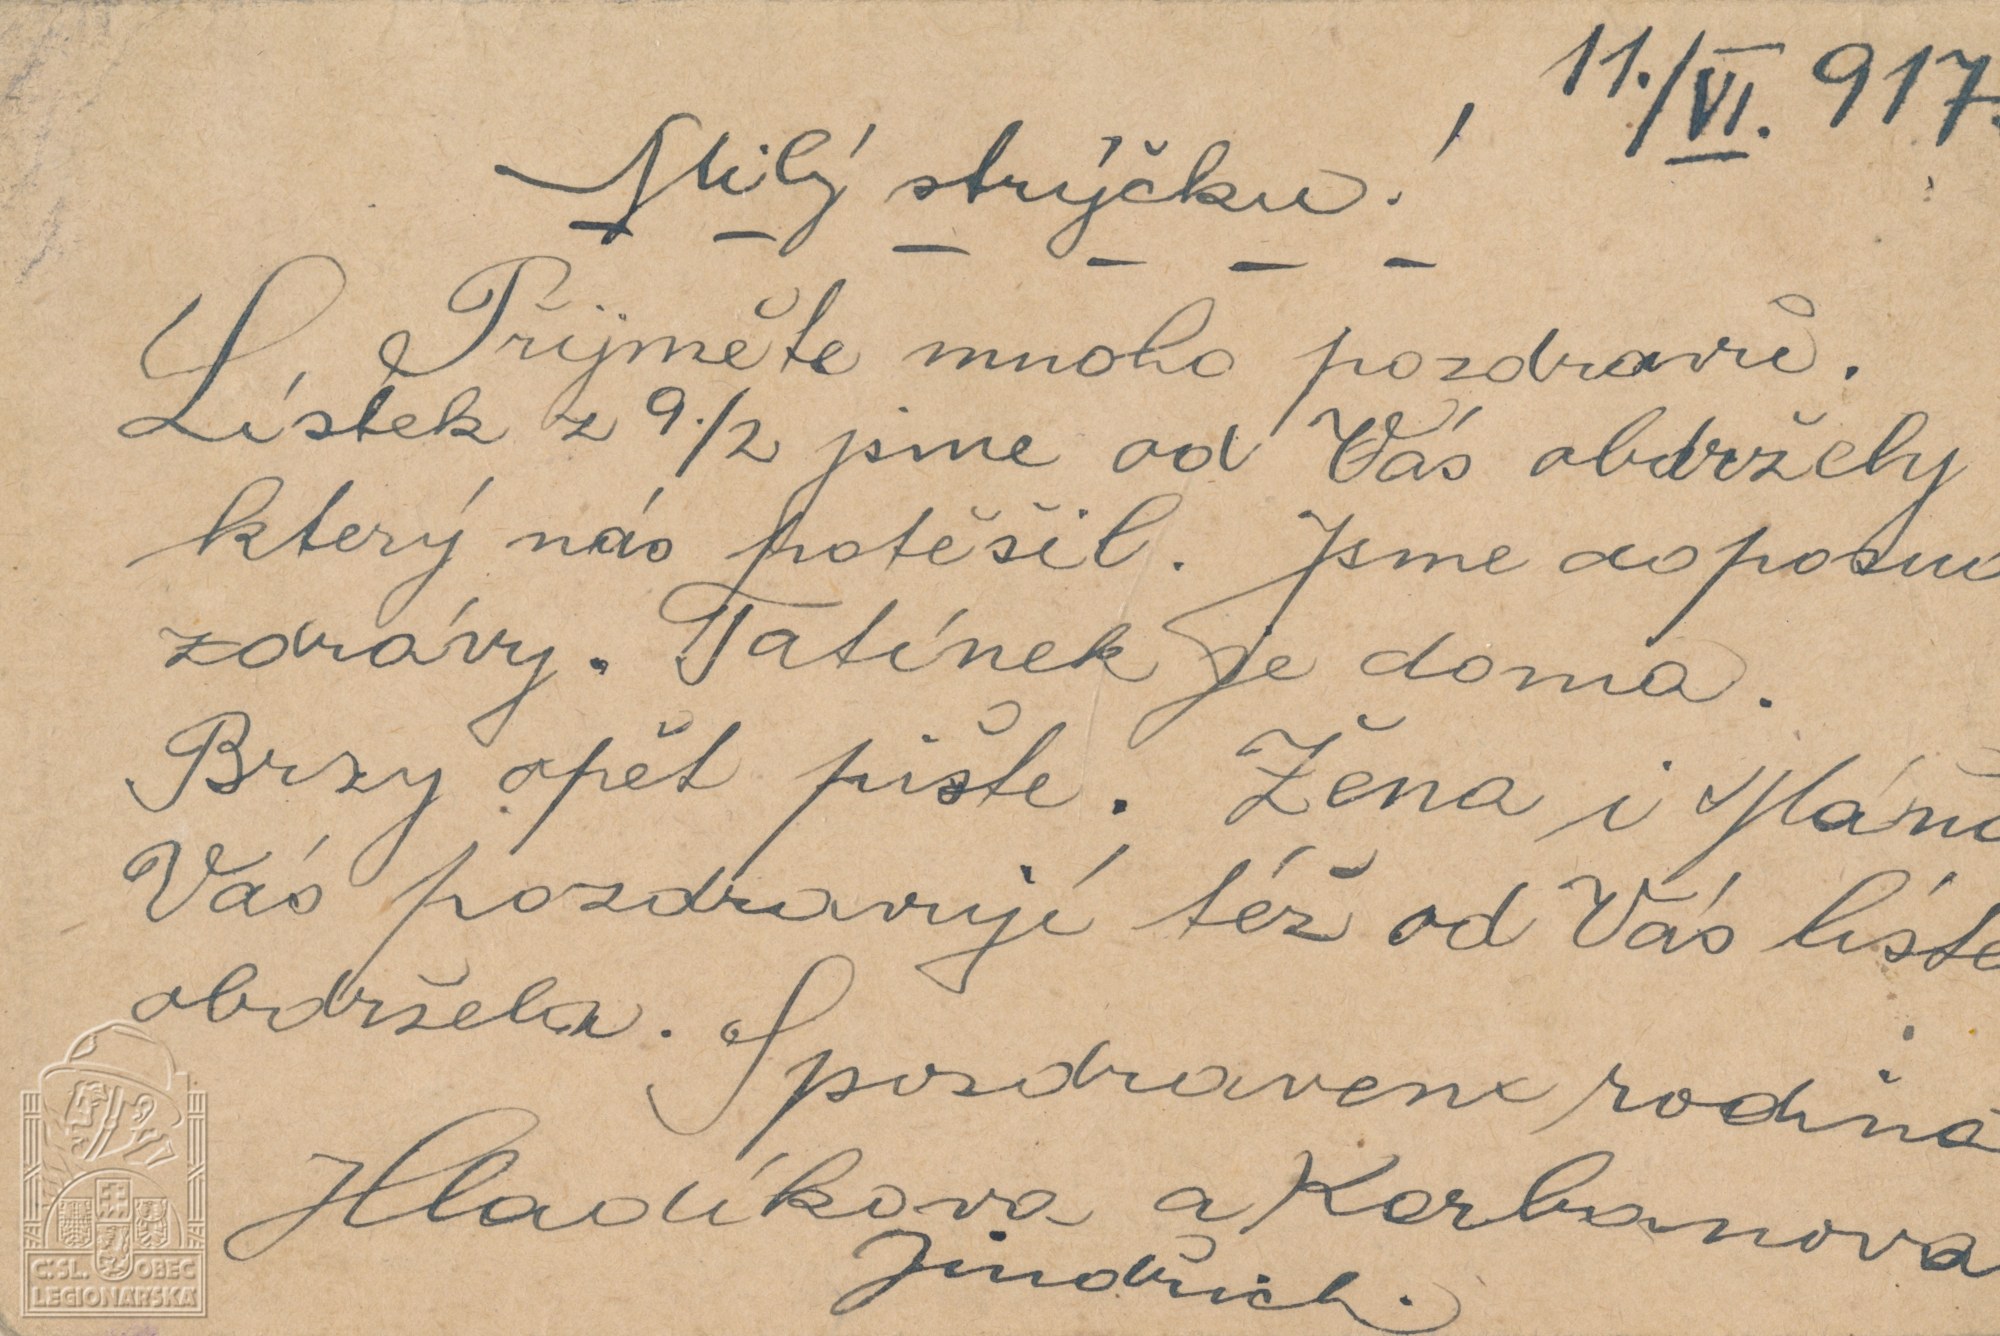 11./VI. 917.
Milý strýčku!
Přijměte mnoho pozdravů.
Lístek z 9./2 jsme od Vás obdržely
který nás potěšil. Jsme doposud
zdrávy. Tatínek je doma.
Brzy opět pište. Žena i
Vás pozdravují též od Vás líste
obdržela. S pozdravem rodina
Hladíkova a Korbanova
Jindřich.
ČSL. OBEC
LEGIONÁŘSKÁ